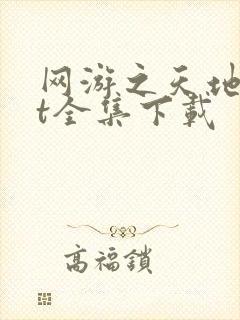 网游之天地
t全集下载
高福鎖